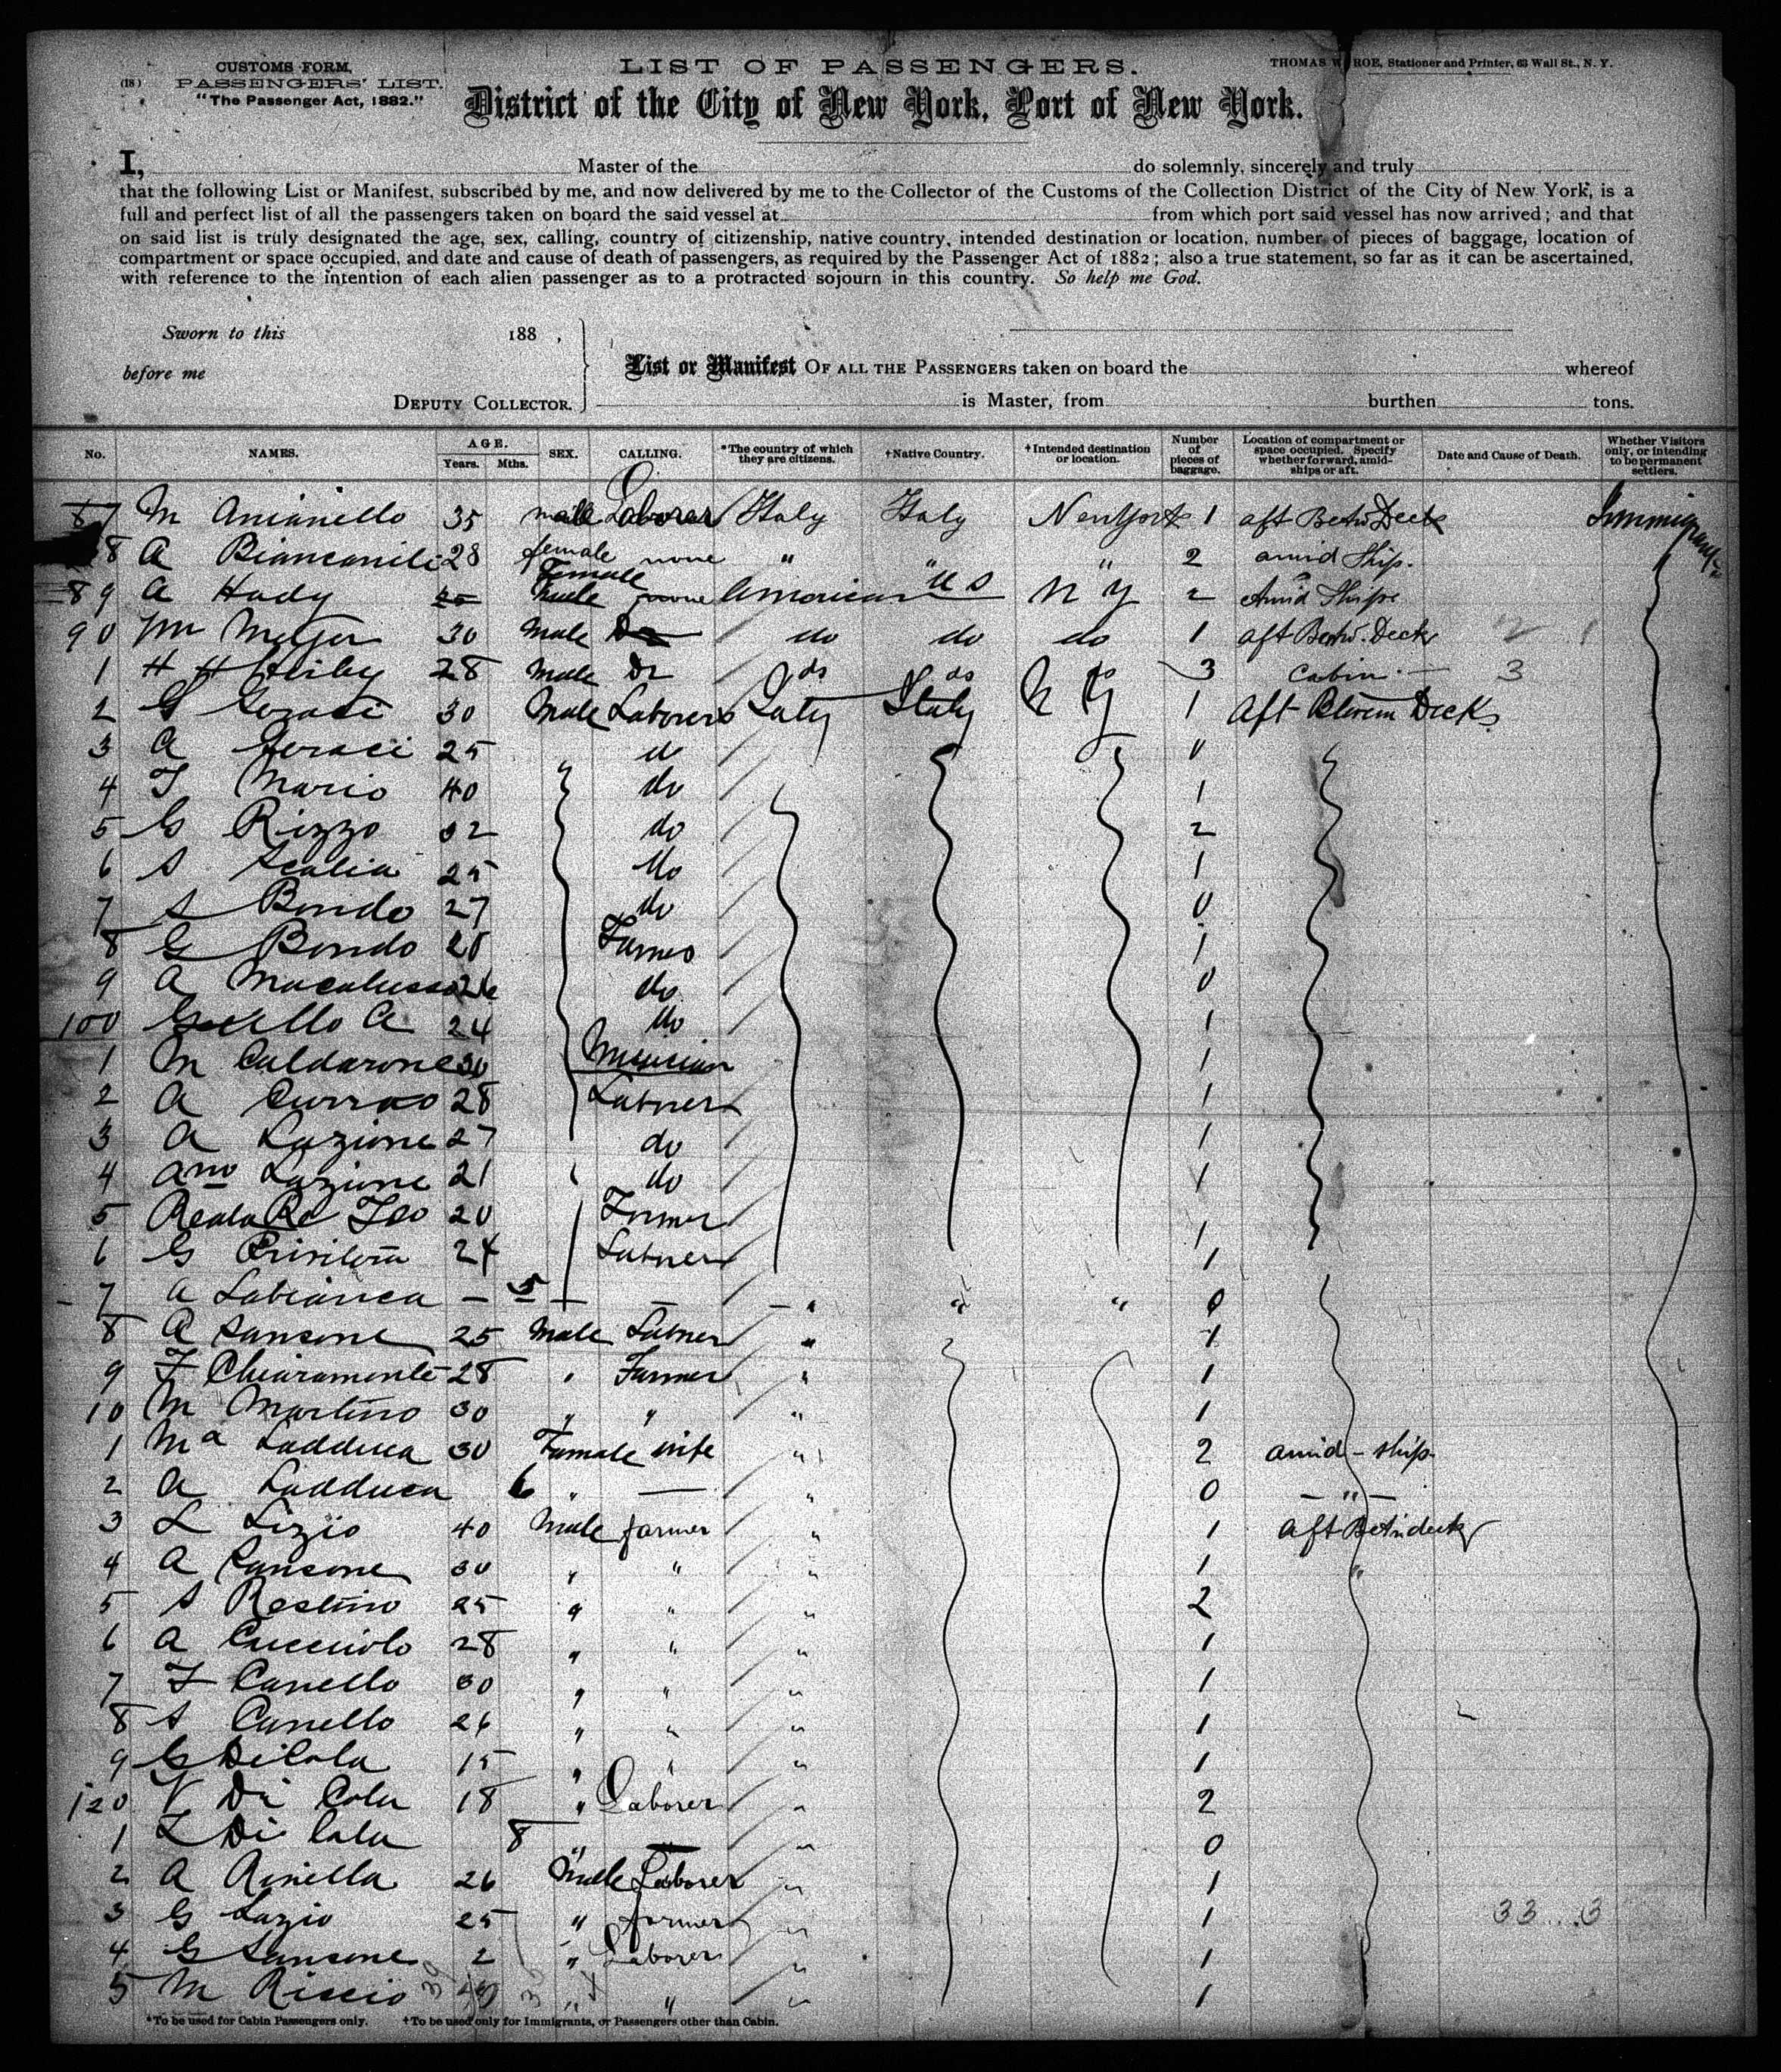 CUSTOMS FORM.
(18) PASSENGERS' LIST.
"The Passenger Act, 1882."
LIST OF PASSENGERS.
THOMAS W. ROE, Stationer and Printer, 63 Wall St., N. Y.
District of the City of New York, Port of New York.
I, Master of the do solemnly, sincerely and truly
that the following List or Manifest, subscribed by me, and now delivered by me to the Collector of the Customs of the Collection District of the City of New York, is a
full and perfect list of all the passengers taken on board the said vessel at from which port said vessel has now arrived; and that
on said list is truly designated the age, sex, calling, country of citizenship, native country, intended destination or location, number of pieces of baggage, location of
compartment or space occupied, and date and cause of death of passengers, as required by the Passenger Act of 1882; also a true statement, so far as it can be ascertained,
with reference to the intention of each alien passenger as to a protracted sojourn in this country. So help me God.
Sworn to this 188 ,
before me
DEPUTY COLLECTOR.
List or Manifest OF ALL THE PASSENGERS taken on board the whereof
is Master, from burthen tons.
No. NAMES. AGE. Years. Mths. SEX. CALLING. *The country of which they are citizens. †Native Country. †Intended destination or location. Number of pieces of baggage. Location of compartment or space occupied. Specify whether forward, amidships or aft. Date and Cause of Death. Whether Visitors only, or intending to be permanent settlers.
87 M Anianello 35 male Laborer Italy Italy New York 1 aft Betw Deck
8 A 28 female none " " " 2 amid Ship.
89 A Hady 25 Female none American U S N Y 2 Amid Ships
90 30 Male do do do 1 aft Betw. Deck
1 H H 28 Male Dr do do do 3 Cabin 3
2 G Geraci 30 Male Laborer Italy Italy N Y 1 Aft Deck
3 A Geraci 25 do 0
4 F Mario 40 do 1
5 G Rizzo 32 do 2
6 S Scalia 25 do 1
7 S Bondo 27 do 0
8 G Bondo 28 Farmer 1
9 A Macalusso 26 do 0
100 A 24 do 1
1 M Caldarone 30 Musician 1
2 A Currao 28 Laborer 1
3 A Lazione 27 do 1
4 Ano Lazione 21 do 1
5 20 Farmer 1
6 G 24 Laborer 1
7 A Labianca — 5 — — — " " " 0
8 A Sansone 25 Male Laborer " 1
9 F Chiaramonte 28 " Farmer " 1
10 M Martino 30 " " " 1
1 Ma Ladduca 30 Female wife " 2 amid-ship
2 A Ladduca 6 " — " 0 — " —
3 L Lizio 40 Male farmer " 1 aft Betw deck
4 A Sansone 30 " " " 1 "
5 S Restino 25 " " " 2
6 A Cucciolo 28 " " " 1
7 F Canello 30 " " " 1
8 S Canello 26 " " " 1
9 G DiCola 15 " " " 1
120 V Di Cola 18 " Laborer " 2
1 L Di Cola 8 " — " 0
2 A Ainella 26 Male Laborer " 1
3 G Lazio 25 " farmer " 1 33 3
4 G Sansone 2 " Laborer " 1
5 M Riccio " " " 1
*To be used for Cabin Passengers only. †To be used only for Immigrants, or Passengers other than Cabin.